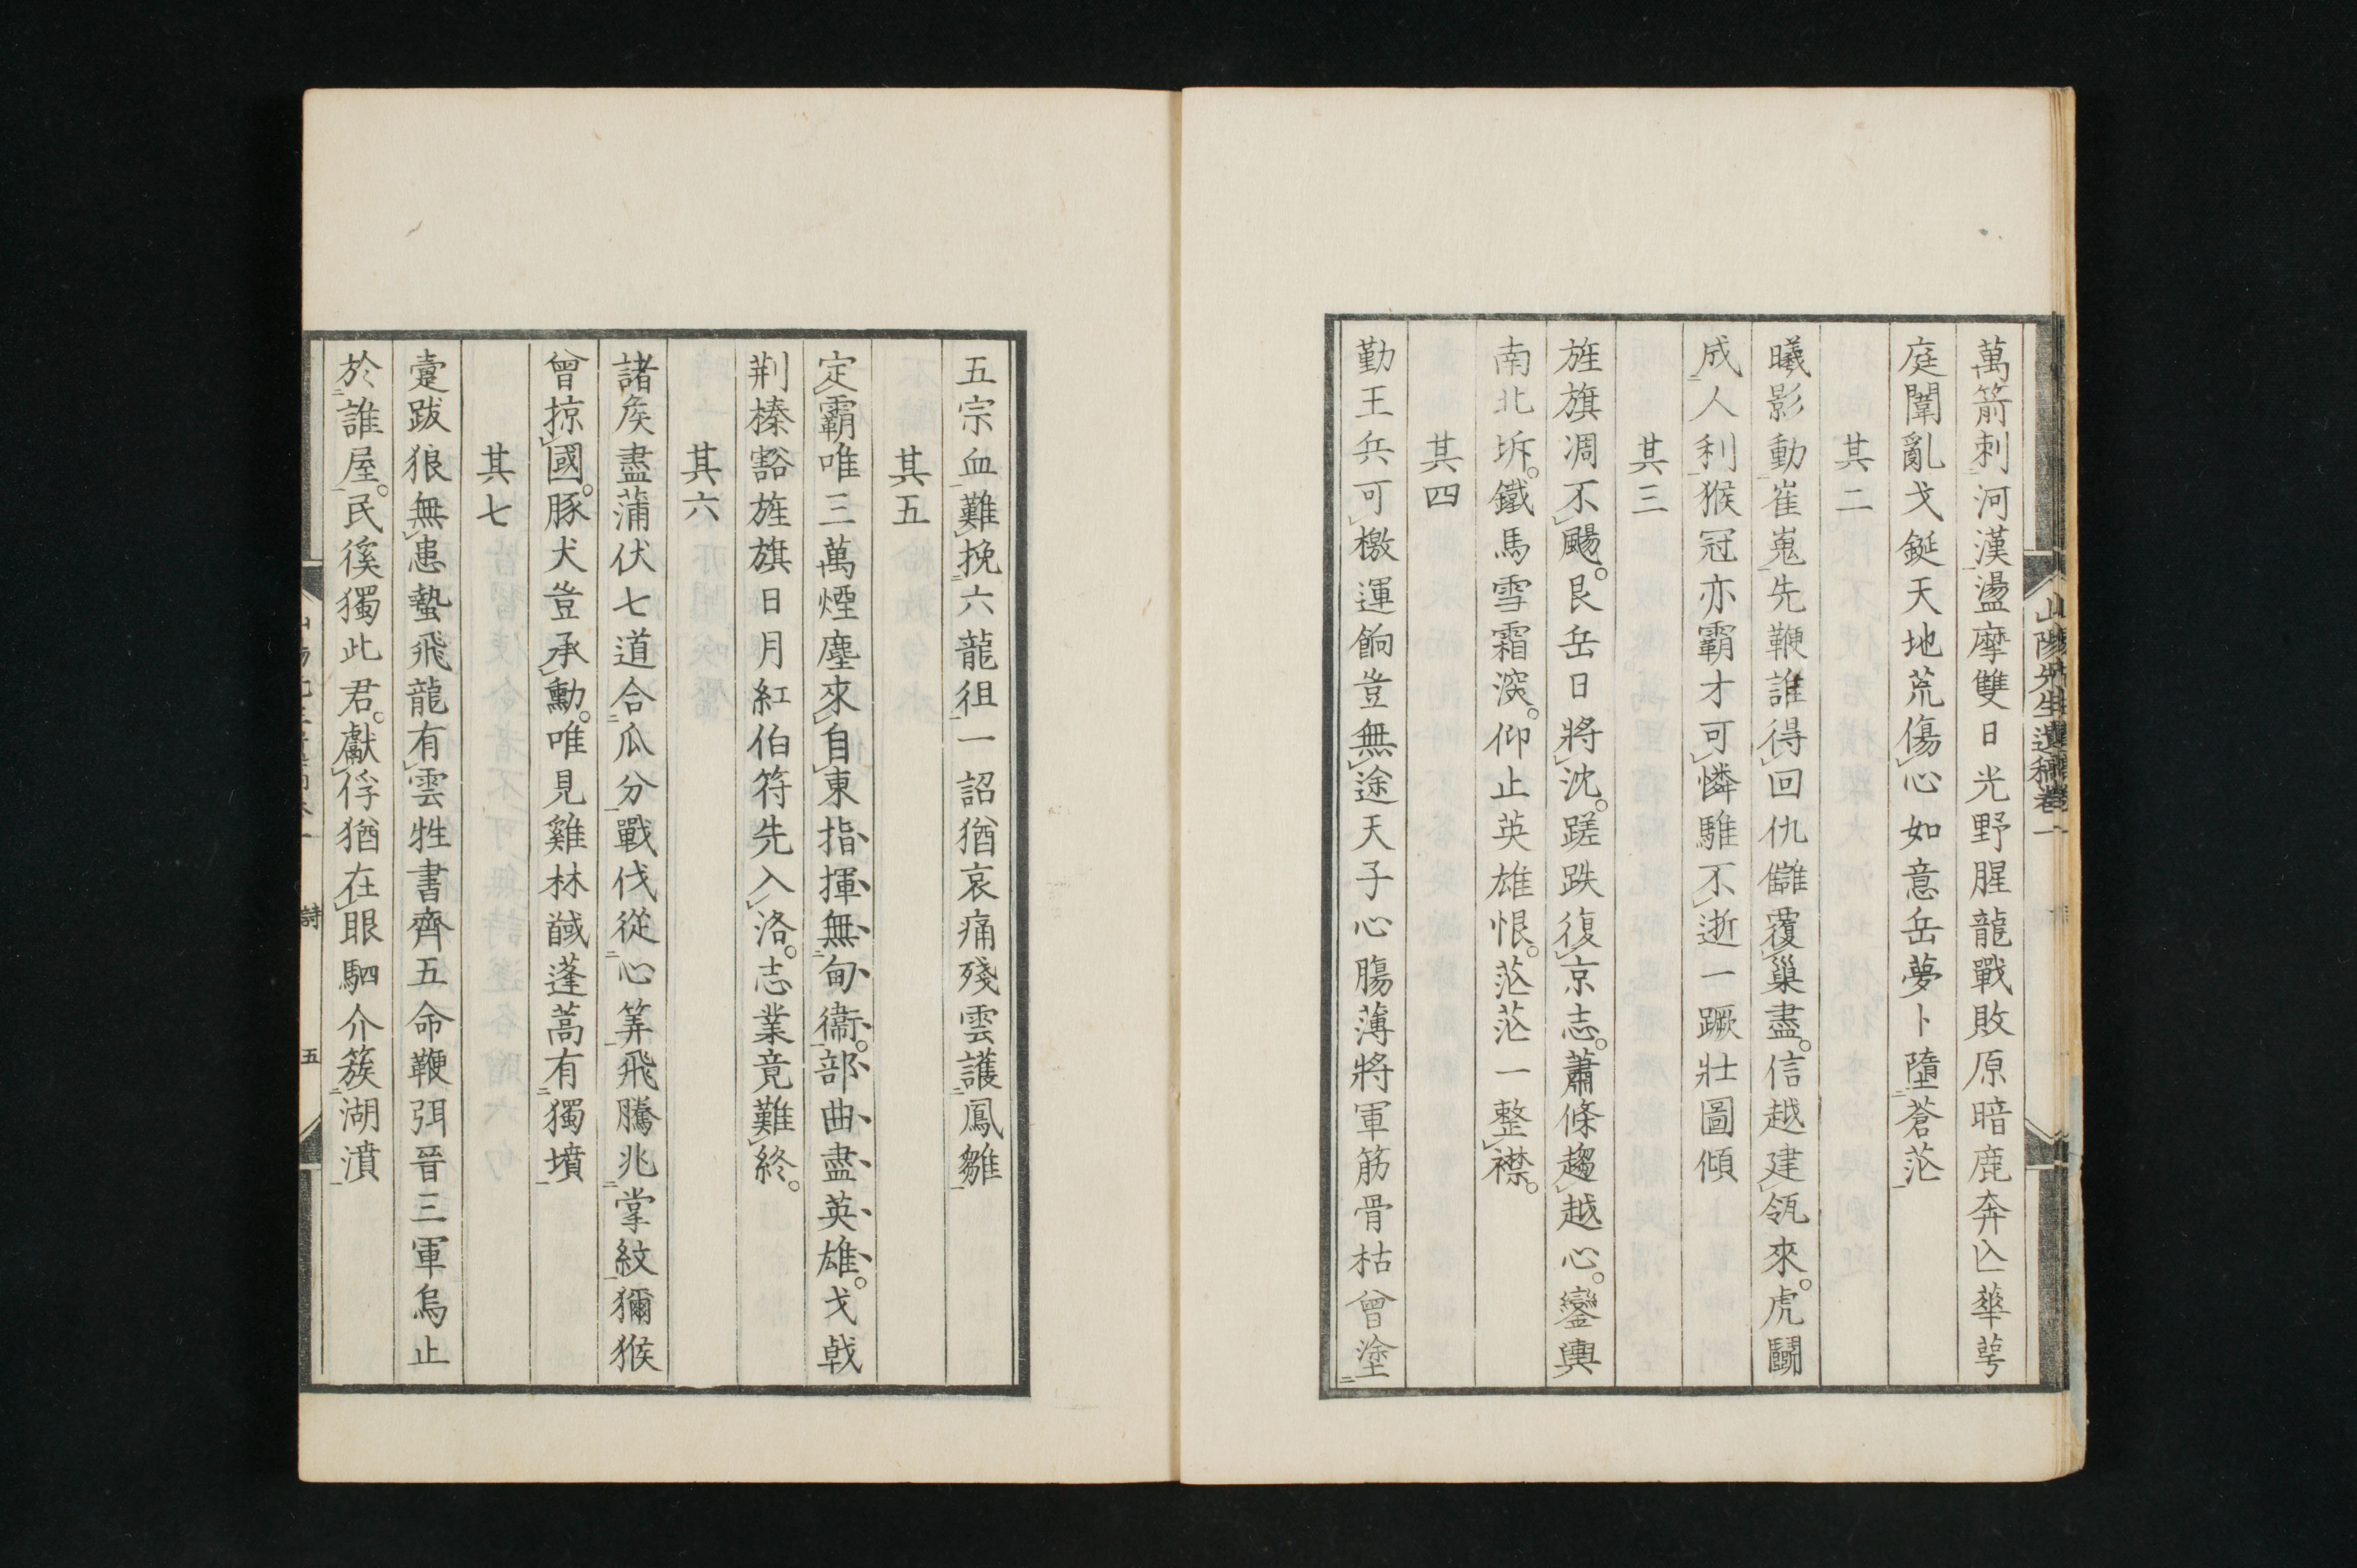 山陽先生遺稿卷一
萬箭刺河漢盪摩雙日光野腥龍戰敗原暗鹿奔亾華萼
庭闈亂戈鋋天地荒傷心如意岳夢卜墮蒼茫
其二
曦影動崔嵬先鞭誰得回仇儺覆巢盡信越建瓴來虎鬬
成人利猴冠亦霸才可憐騅不逝一蹶壯圖傾
其三
旌旗凋不颺艮岳日將沈蹉跌復京志蕭條趨越心鑾輿
南北坼鐵馬雪霜深仰止英雄恨茫茫一整襟
其四
勤王兵可檄運餉豈無途天子心腸薄將軍筋骨枯曾塗
五宗血難挽六龍徂一詔猶哀痛殘雲護鳳雛
其五
定霸唯三萬煙塵來自東指揮無甸衞部曲盡英雄戈戟
荆榛豁旌旗日月紅伯符先入洛志業竟難終
其六
諸矦盡蒲伏七道合瓜分戰伐從心筭飛騰兆掌紋獼猴
曾掠國豚犬豈承勳唯見雞林馘蓬蒿有獨墳
其七
疐跋狼無恙蟄飛龍有雲牲書齊五命鞭弭晉三軍烏止
於誰屋民徯獨此君獻俘猶在眼駟介簇湖濆
詩
五